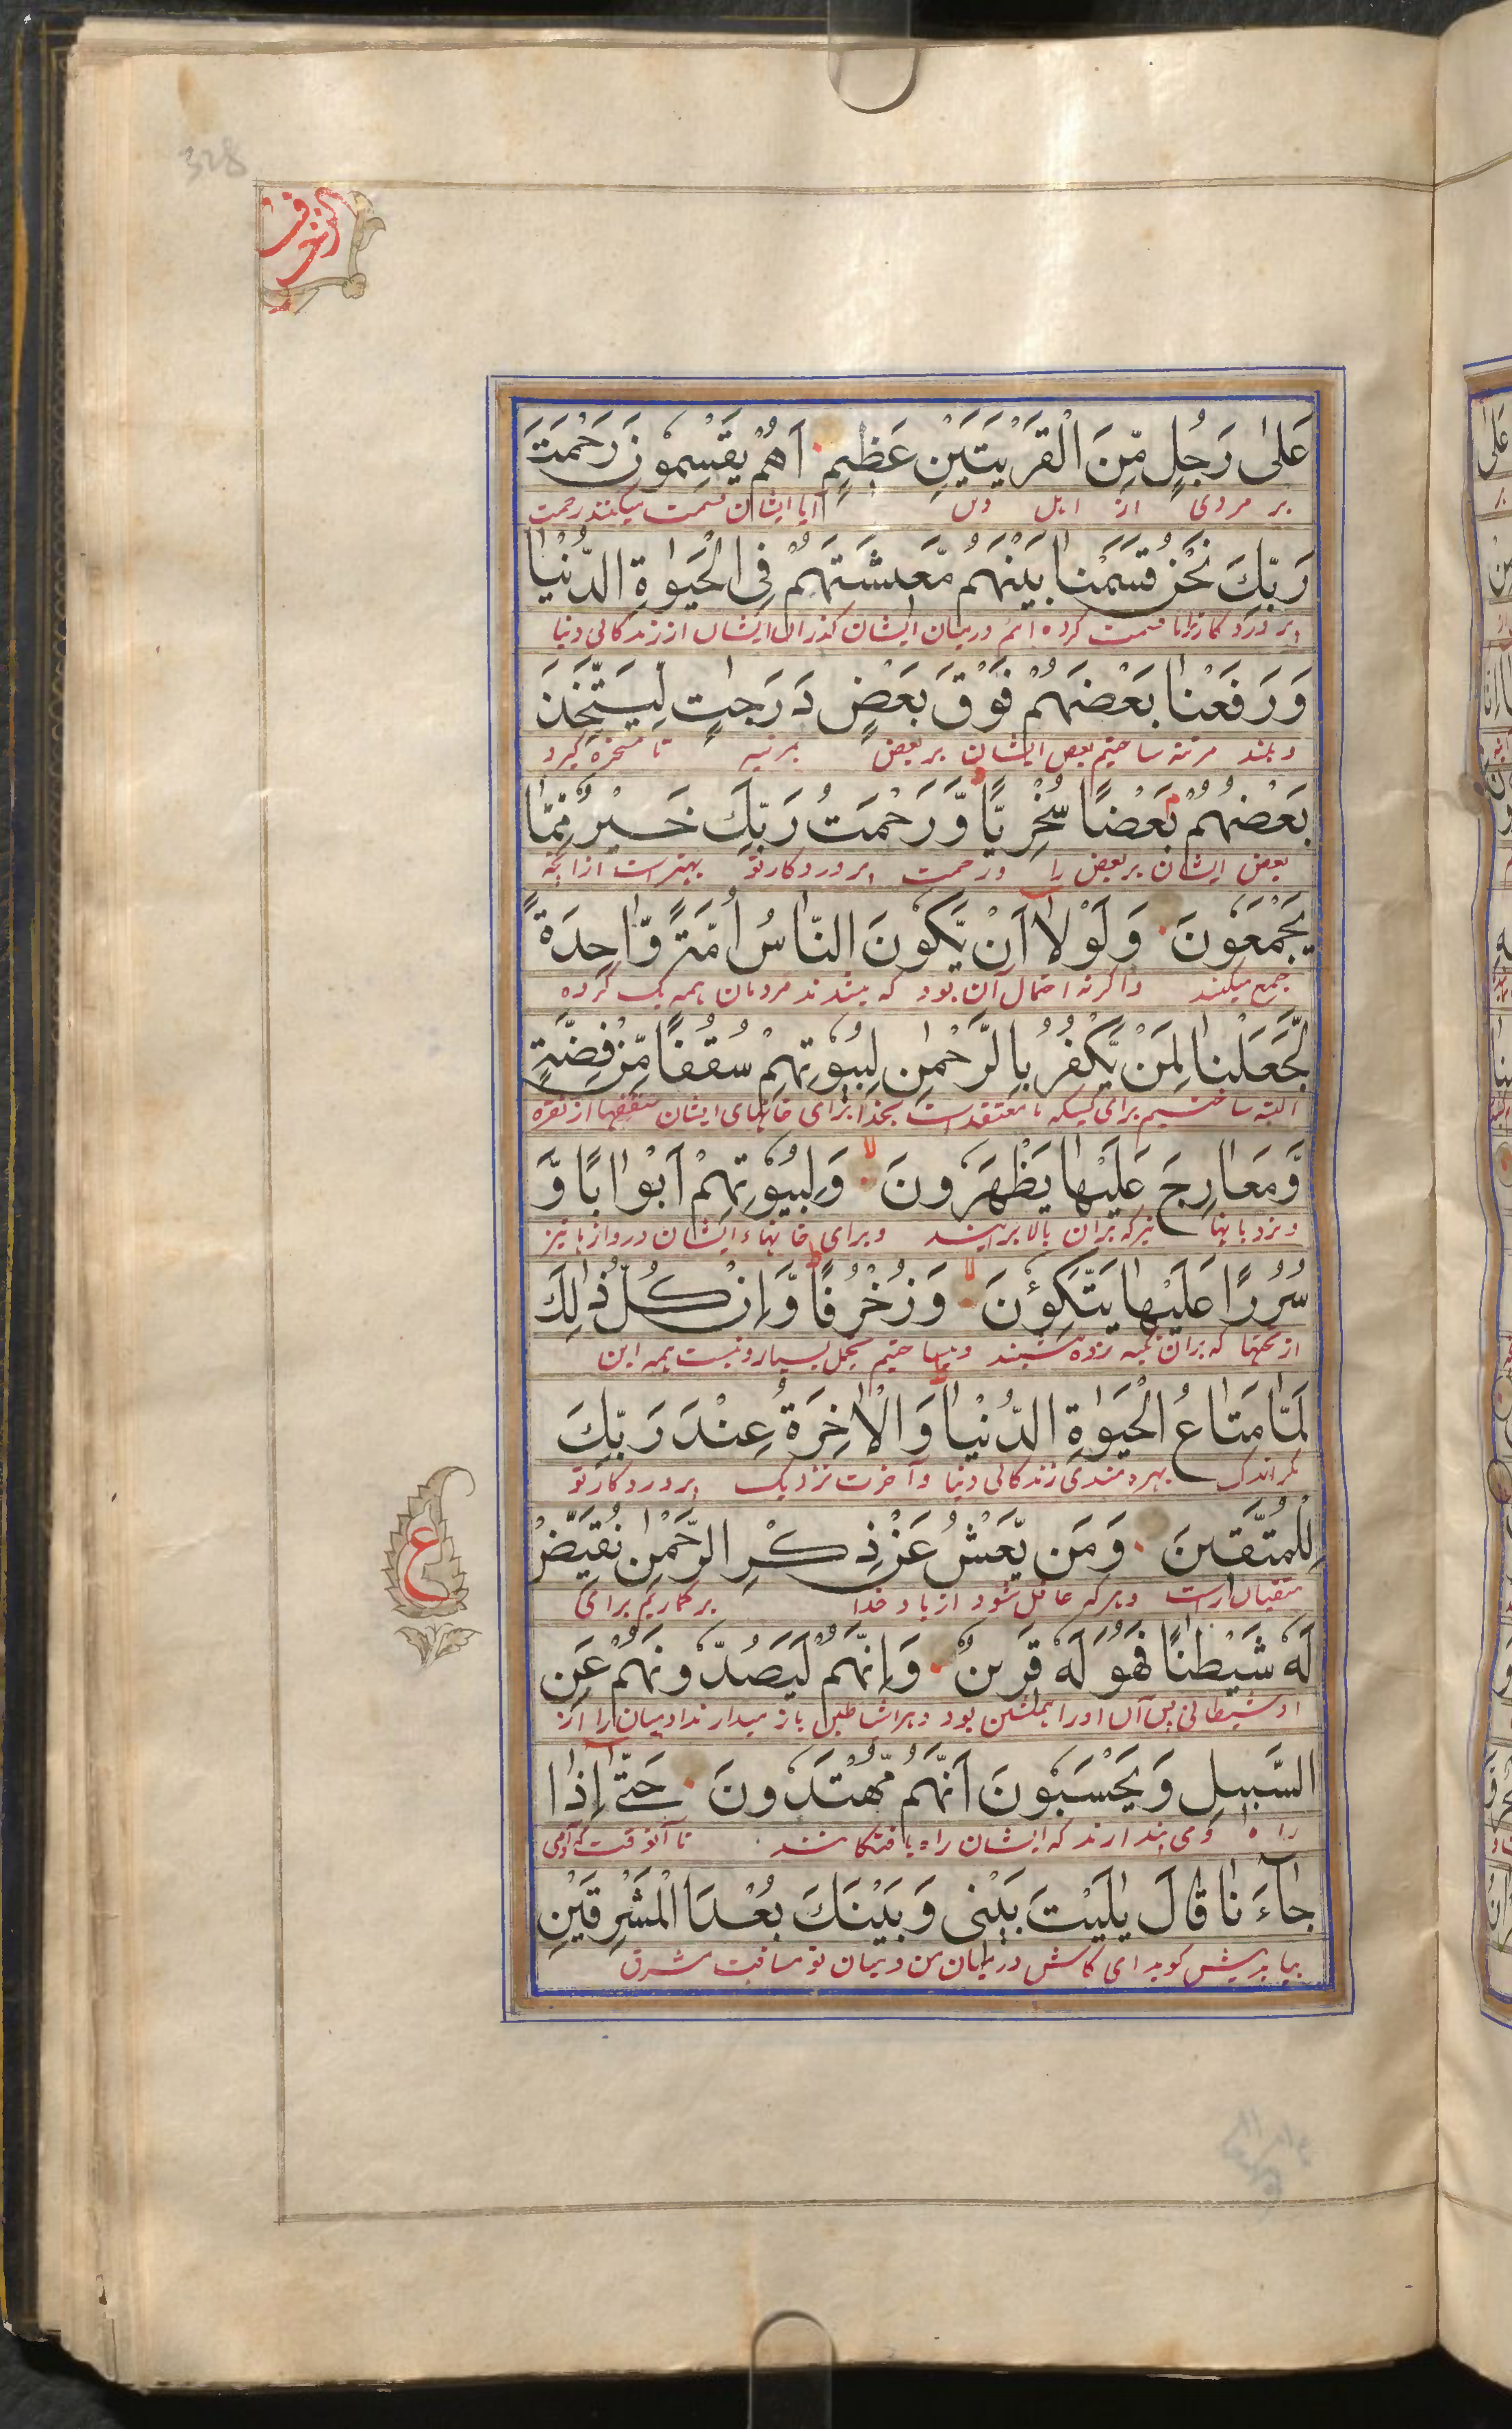 328
الزخرف
عَلىٰ رَجُلٍ مِّنَ الْقَرْيَتَيْنِ عَظِيمٍ اَهُمْ يَقْسِمُونَ رَحْمَتَ
بر مردی از اهل آیا ایشان قسمت میکنند رحمت
رَبِّكَ نَحْنُ قَسَمْنٰا بَيْنَهُمْ مَّعِيشَتَهُمْ فِى الْحَيٰوةِ الدُّنْيٰا
قسمت کرده ایم درمیان ایشان گذران ایشان از زندگانی دنیا
وَرَفَعْنٰا بَعْضَهُمْ فَوْقَ بَعْضٍ دَرَجٰاتٍ لِّيَتَّخِذَ
و بلند مرتبه ساختیم بعض ایشان بر بعض بمرتبه تا مسخره گیرد
بَعْضُهُمْ بَعْضًا سُخْرِيًّا وَّرَحْمَتُ رَبِّكَ خَيْرٌ مِّمّٰا
بعض ایشان بر بعض را و رحمت پروردگار تو بهتر است از آنچه
يَجْمَعُونَ وَلَوْلٰا اَنْ يَّكُونَ النّٰاسُ اُمَّةً وّٰاحِدَةً
جمع میکنند و اگر نه احتمال آن بود که میشدند مردمان همه یک گروه
لَّجَعَلْنٰا لِمَنْ يَّكْفُرُ بِالرَّحْمٰنِ لِبُيُوتِهِمْ سُقُفًا مِّنْ فِضَّةٍ
البته ساختیم برای کسیکه نامعتقد است بخدا برای خانهای ایشان سقفها از نقره
وَّمَعٰارِجَ عَلَيْهٰا يَظْهَرُونَ وَلِبُيُوتِهِمْ اَبْوٰابًا وَّ
و نردبانها نیز که بران بالا برآیند و برای خانهاء ایشان دروازها نیز
سُرُرًا عَلَيْهٰا يَتَّكِؤُنَ وَزُخْرُفًا وَّاِنْ كُلُّ ذٰلِكَ
از تختها که بران تکیه زده نشینند و میساختیم تجمل بسیار و نیست همه این
لَمّٰا مَتٰاعُ الْحَيٰوةِ الدُّنْيٰا وَالْاٰخِرَةُ عِنْدَ رَبِّكَ
مگر اندک بهره مندی زندگانی دنیا و آخرت نزدیک پروردگار تو
لِلْمُتَّقِينَ وَمَن يَّعْشُ عَنْ ذِكْرِ الرَّحْمٰنِ نُقَيِّضْ
متقیان راست و هر که غافل شود از یاد خدا برگماریم برای
ع
لَهُ شَيْطٰنًا فَهُوَ لَهُ قَرِينٌ وَاِنَّهُمْ لَيَصُدُّونَهُمْ عَنِ
او شیطانی پس آن او را همنشین بود و هرآینه شیاطین باز میدارند آدمیان را از
السَّبِيلِ وَيَحْسَبُونَ اَنَّهُمْ مُّهْتَدُونَ حَتّٰى اِذٰا
راه و می پندارند که ایشان راه یافتگانند تا آنوقت که آدمی
جٰاءَنٰا قٰالَ يٰلَيْتَ بَيْنِى وَبَيْنَكَ بُعْدَ الْمَشْرِقَيْنِ
بیاید پیش گوید ای کاش درمیان من و میان تو مسافت مشرق